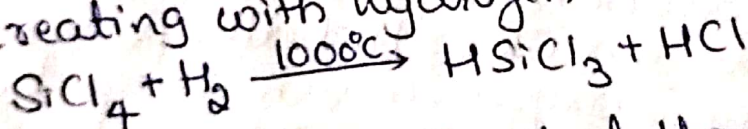 reating with
SiCl₄ + H₂ 1000°C → HSiCl₃ + HCl